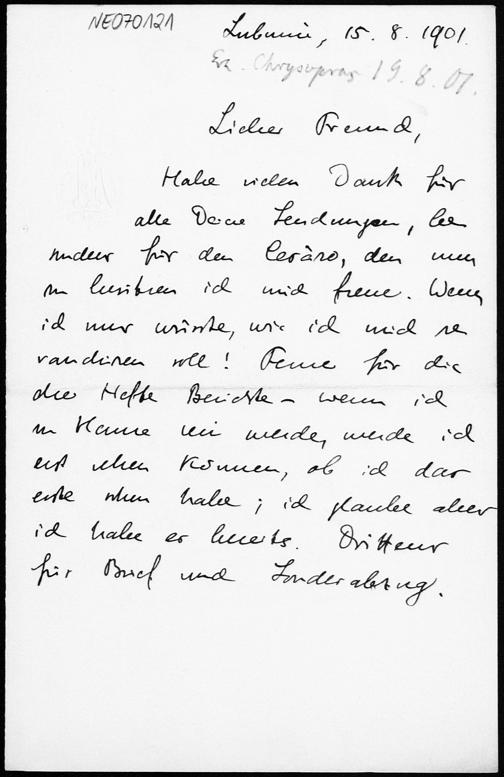 NE070121
Lubmin, 15. 8. 1901.
Chrysopras 19. 8. 01.
Lieber Freund,
Habe vielen Dank für
alle Deine Sendungen, beson
ders für den Cesàro, den nun
zu besitzen ich mich freue. Wenn
ich nur wüsste, wie ich mich re
vanchieren soll! Ferner für die
drei Hefte Berichte – wenn ich
zu Hause sein werde, werde ich
erst sehen können, ob ich das
erste schon habe; ich glaube aber
ich habe es bereits. Drittens
für Brief und Sonderabzug.